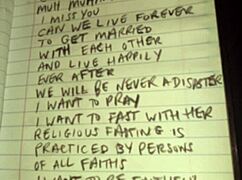 I MISS YOU
CAN WE LIVE FOREVER
TO GET MARRIED
WITH EACH OTHER
AND LIVE HAPPILY
EVER AFTER
WE WILL BE NEVER A DISASTER
I WANT TO PRAY
I WANT TO FAST WITH HER
RELIGIOUS FASTING IS
PRACTICED BY PERSONS
OF ALL FAITHS
I WANT TO BE